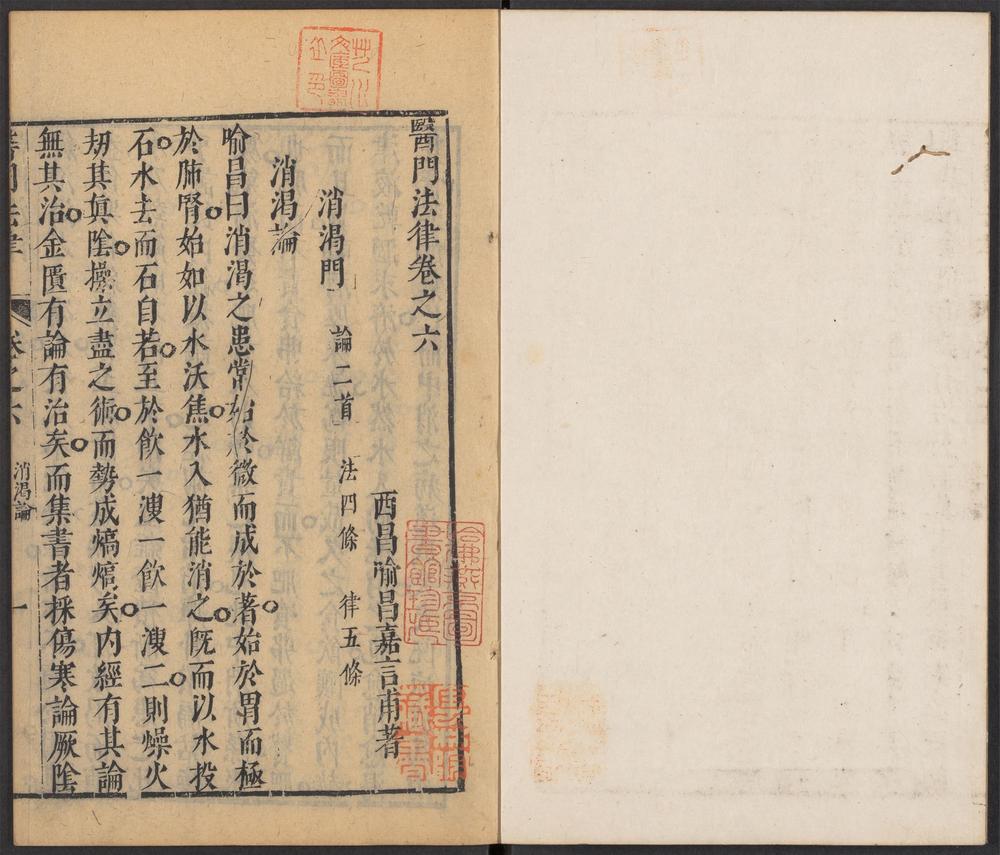 醫門法律卷之六
西昌喻昌嘉言甫著
消渴門 論二首 法四條 律五條
消渴論
喻昌曰消渴之患常始於微而成於著始於胃而極
於肺腎始如以水沃焦水入猶能消之旣而以水投
石水去而石自若至於飮一溲一飮一溲二則燥火
刼其眞陰操立盡之術而勢成熇熇矣内經有其論
無其治金匱有論有治矣而集書者採傷寒論厥陰
卷之六 消渴論 一